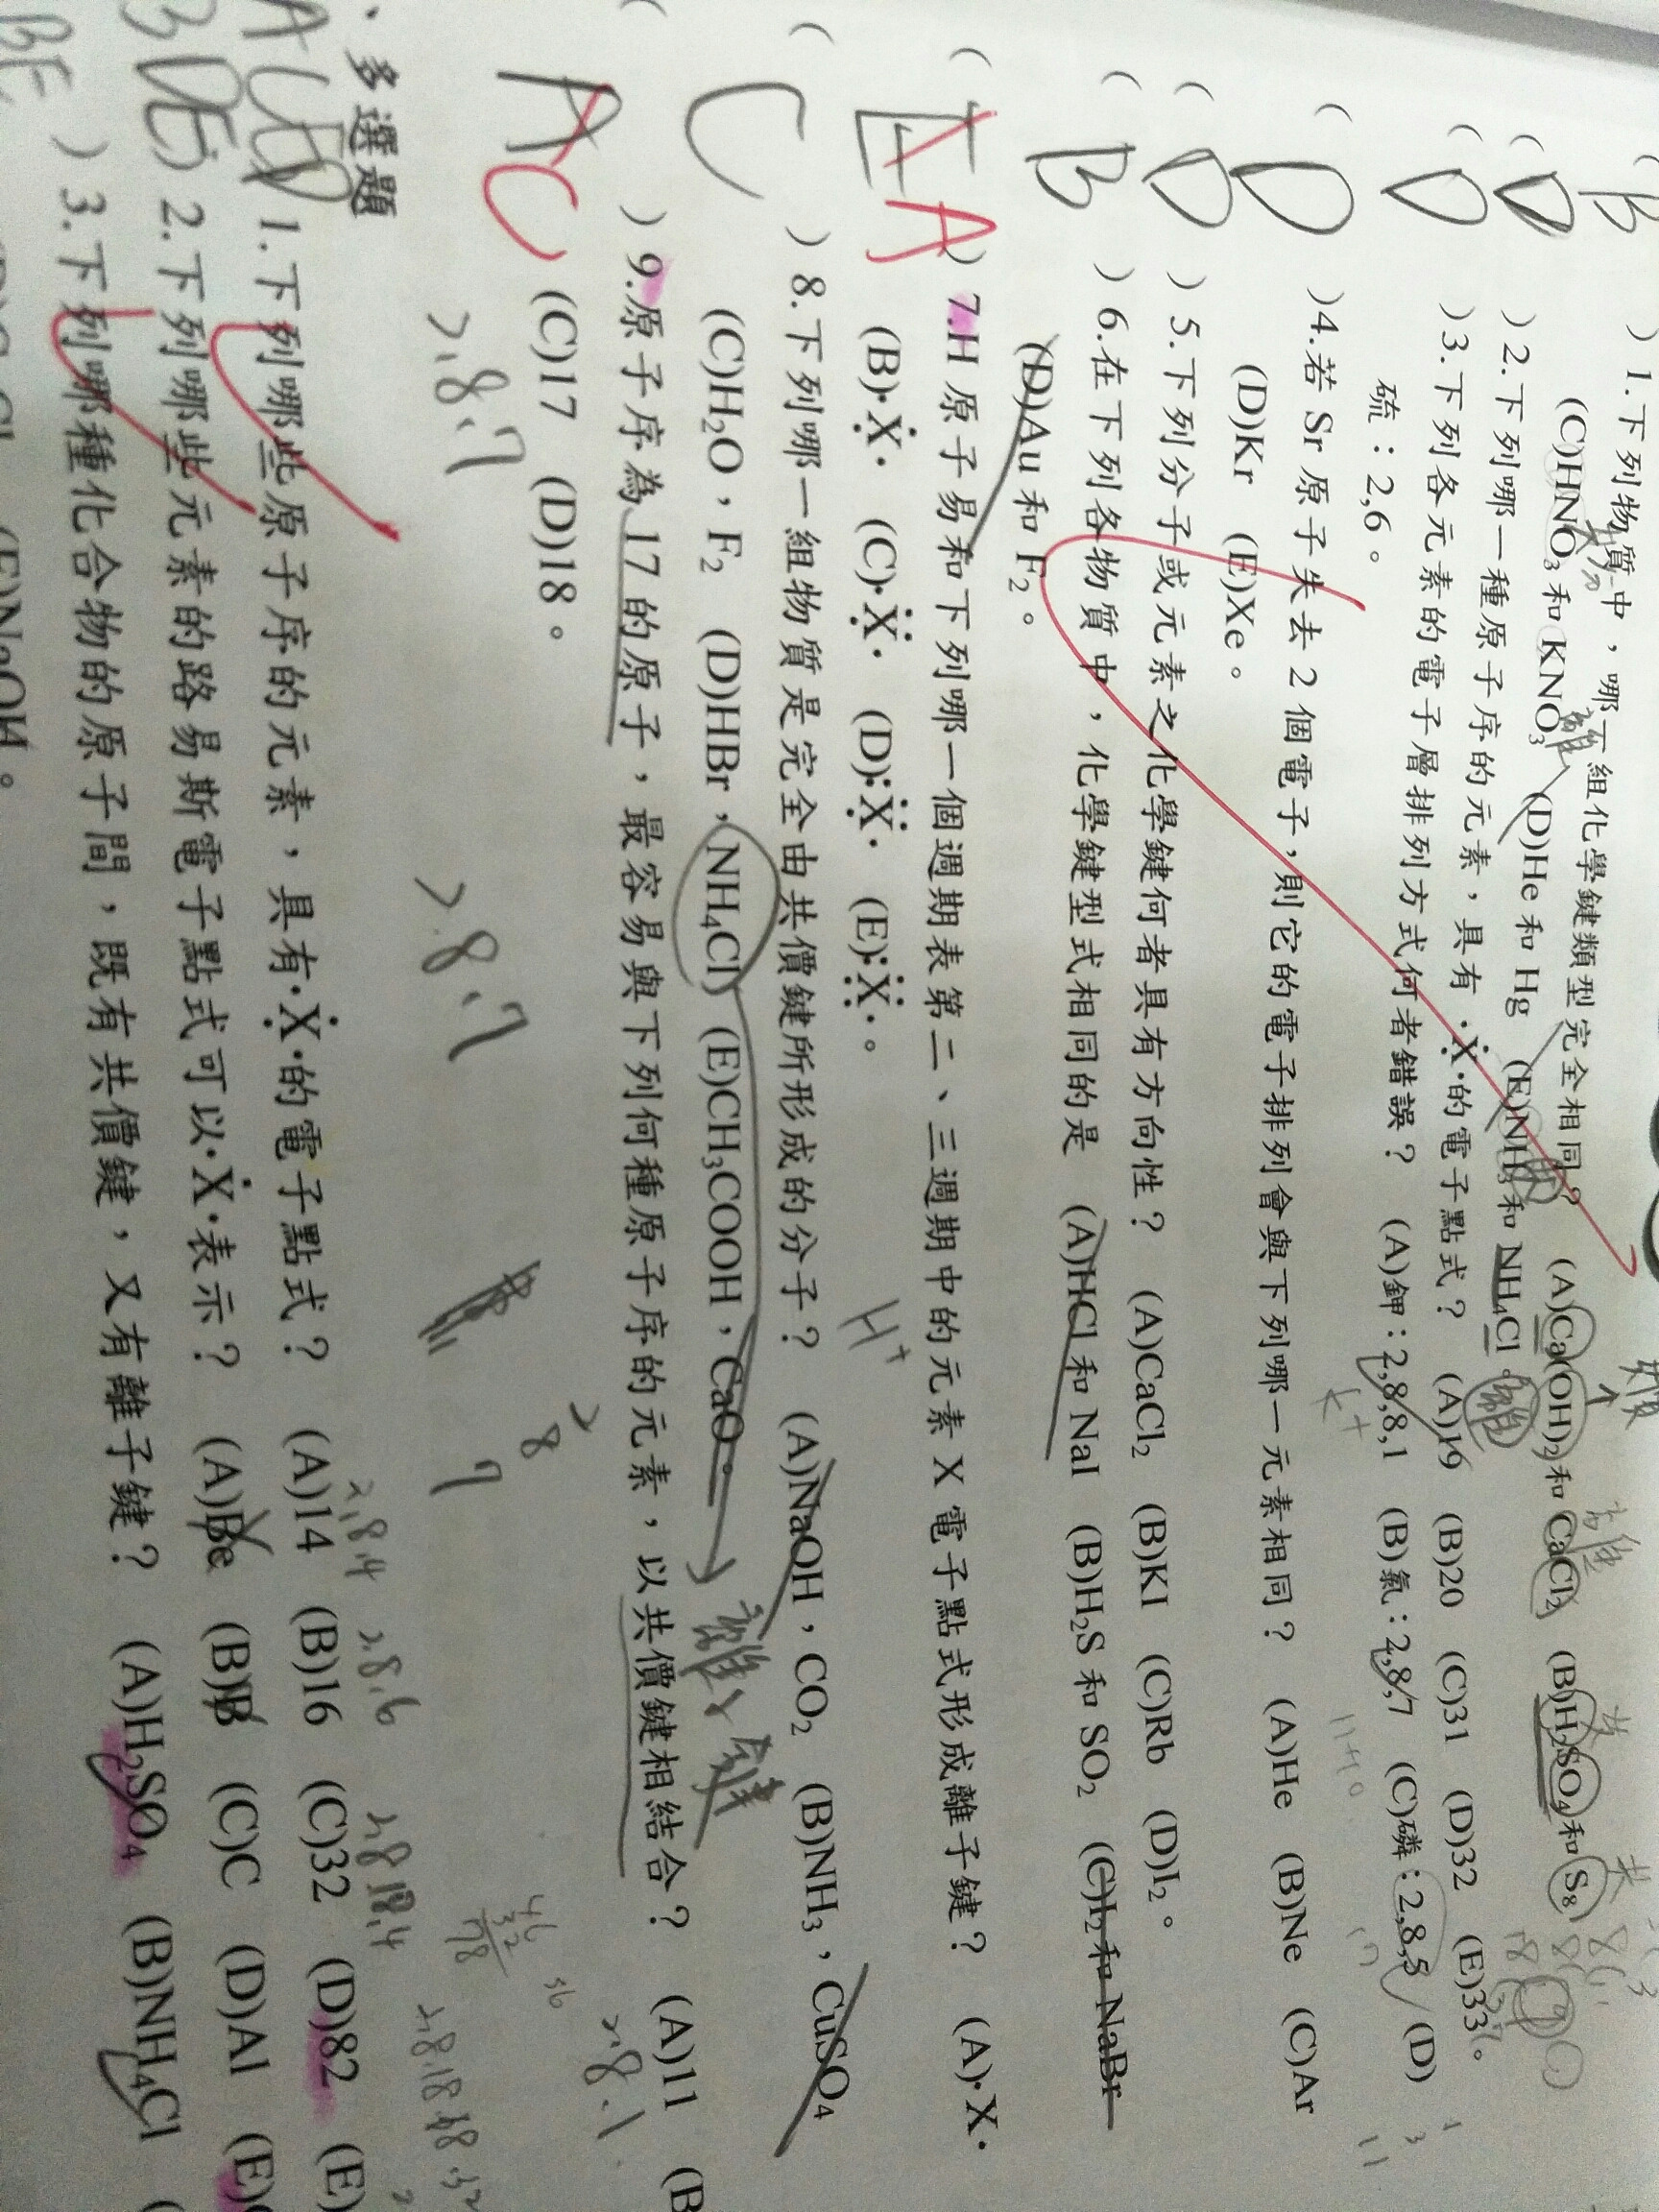 B )1.下列物質中，哪一組化學鍵類型完全相同？ (A)Ca(OH)₂和 CaCl₂ (B)H₂SO₄和 S₈
(C)HNO₃和 KNO₃ (D)He 和 Hg (E)NH₃和 NH₄Cl。
( D )2.下列哪一種原子序的元素，具有 ·Ẋ·的電子點式？ (A)19 (B)20 (C)31 (D)32 (E)33。
( D )3.下列各元素的電子層排列方式何者錯誤？ (A)鉀：2,8,8,1 (B)氯：2,8,7 (C)磷：2,8,5 (D)
硫：2,6。
( D )4.若 Sr 原子失去 2 個電子，則它的電子排列會與下列哪一元素相同？ (A)He (B)Ne (C)Ar
(D)Kr (E)Xe。
( D )5.下列分子或元素之化學鍵何者具有方向性？ (A)CaCl₂ (B)KI (C)Rb (D)I₂。
( B )6.在下列各物質中，化學鍵型式相同的是 (A)HCl 和 NaI (B)H₂S 和 SO₂ (C)I₂ 和 NaBr
(D)Au 和 F₂。
( E A )7.H 原子易和下列哪一個週期表第二、三週期中的元素 X 電子點式形成離子鍵？ (A)·X·
(B)·X· (C)·X· (D):X· (E):X·。
H⁺
( C )8.下列哪一組物質是完全由共價鍵所形成的分子？ (A)NaOH，CO₂ (B)NH₃，CuSO₄
(C)H₂O，F₂ (D)HBr，NH₄Cl (E)CH₃COOH，CaO。
離子鍵
( A C )9.原子序為 17 的原子，最容易與下列何種原子序的元素，以共價鍵相結合？ (A)11 (B
(C)17 (D)18。
2.8.1
2.8.7
2.8.7
多選題
1.下列哪些原子序的元素，具有·X·的電子點式？ (A)14 (B)16 (C)32 (D)82 (E)
2,8,4
2.8.6
2.8.18.4
2.下列哪些元素的路易斯電子點式可以·Ẋ·表示？ (A)Be (B)B (C)C (D)Al (E)
BE )3.下列哪種化合物的原子間，既有共價鍵，又有離子鍵？ (A)H₂SO₄ (B)NH₄Cl
(E)NaOH。